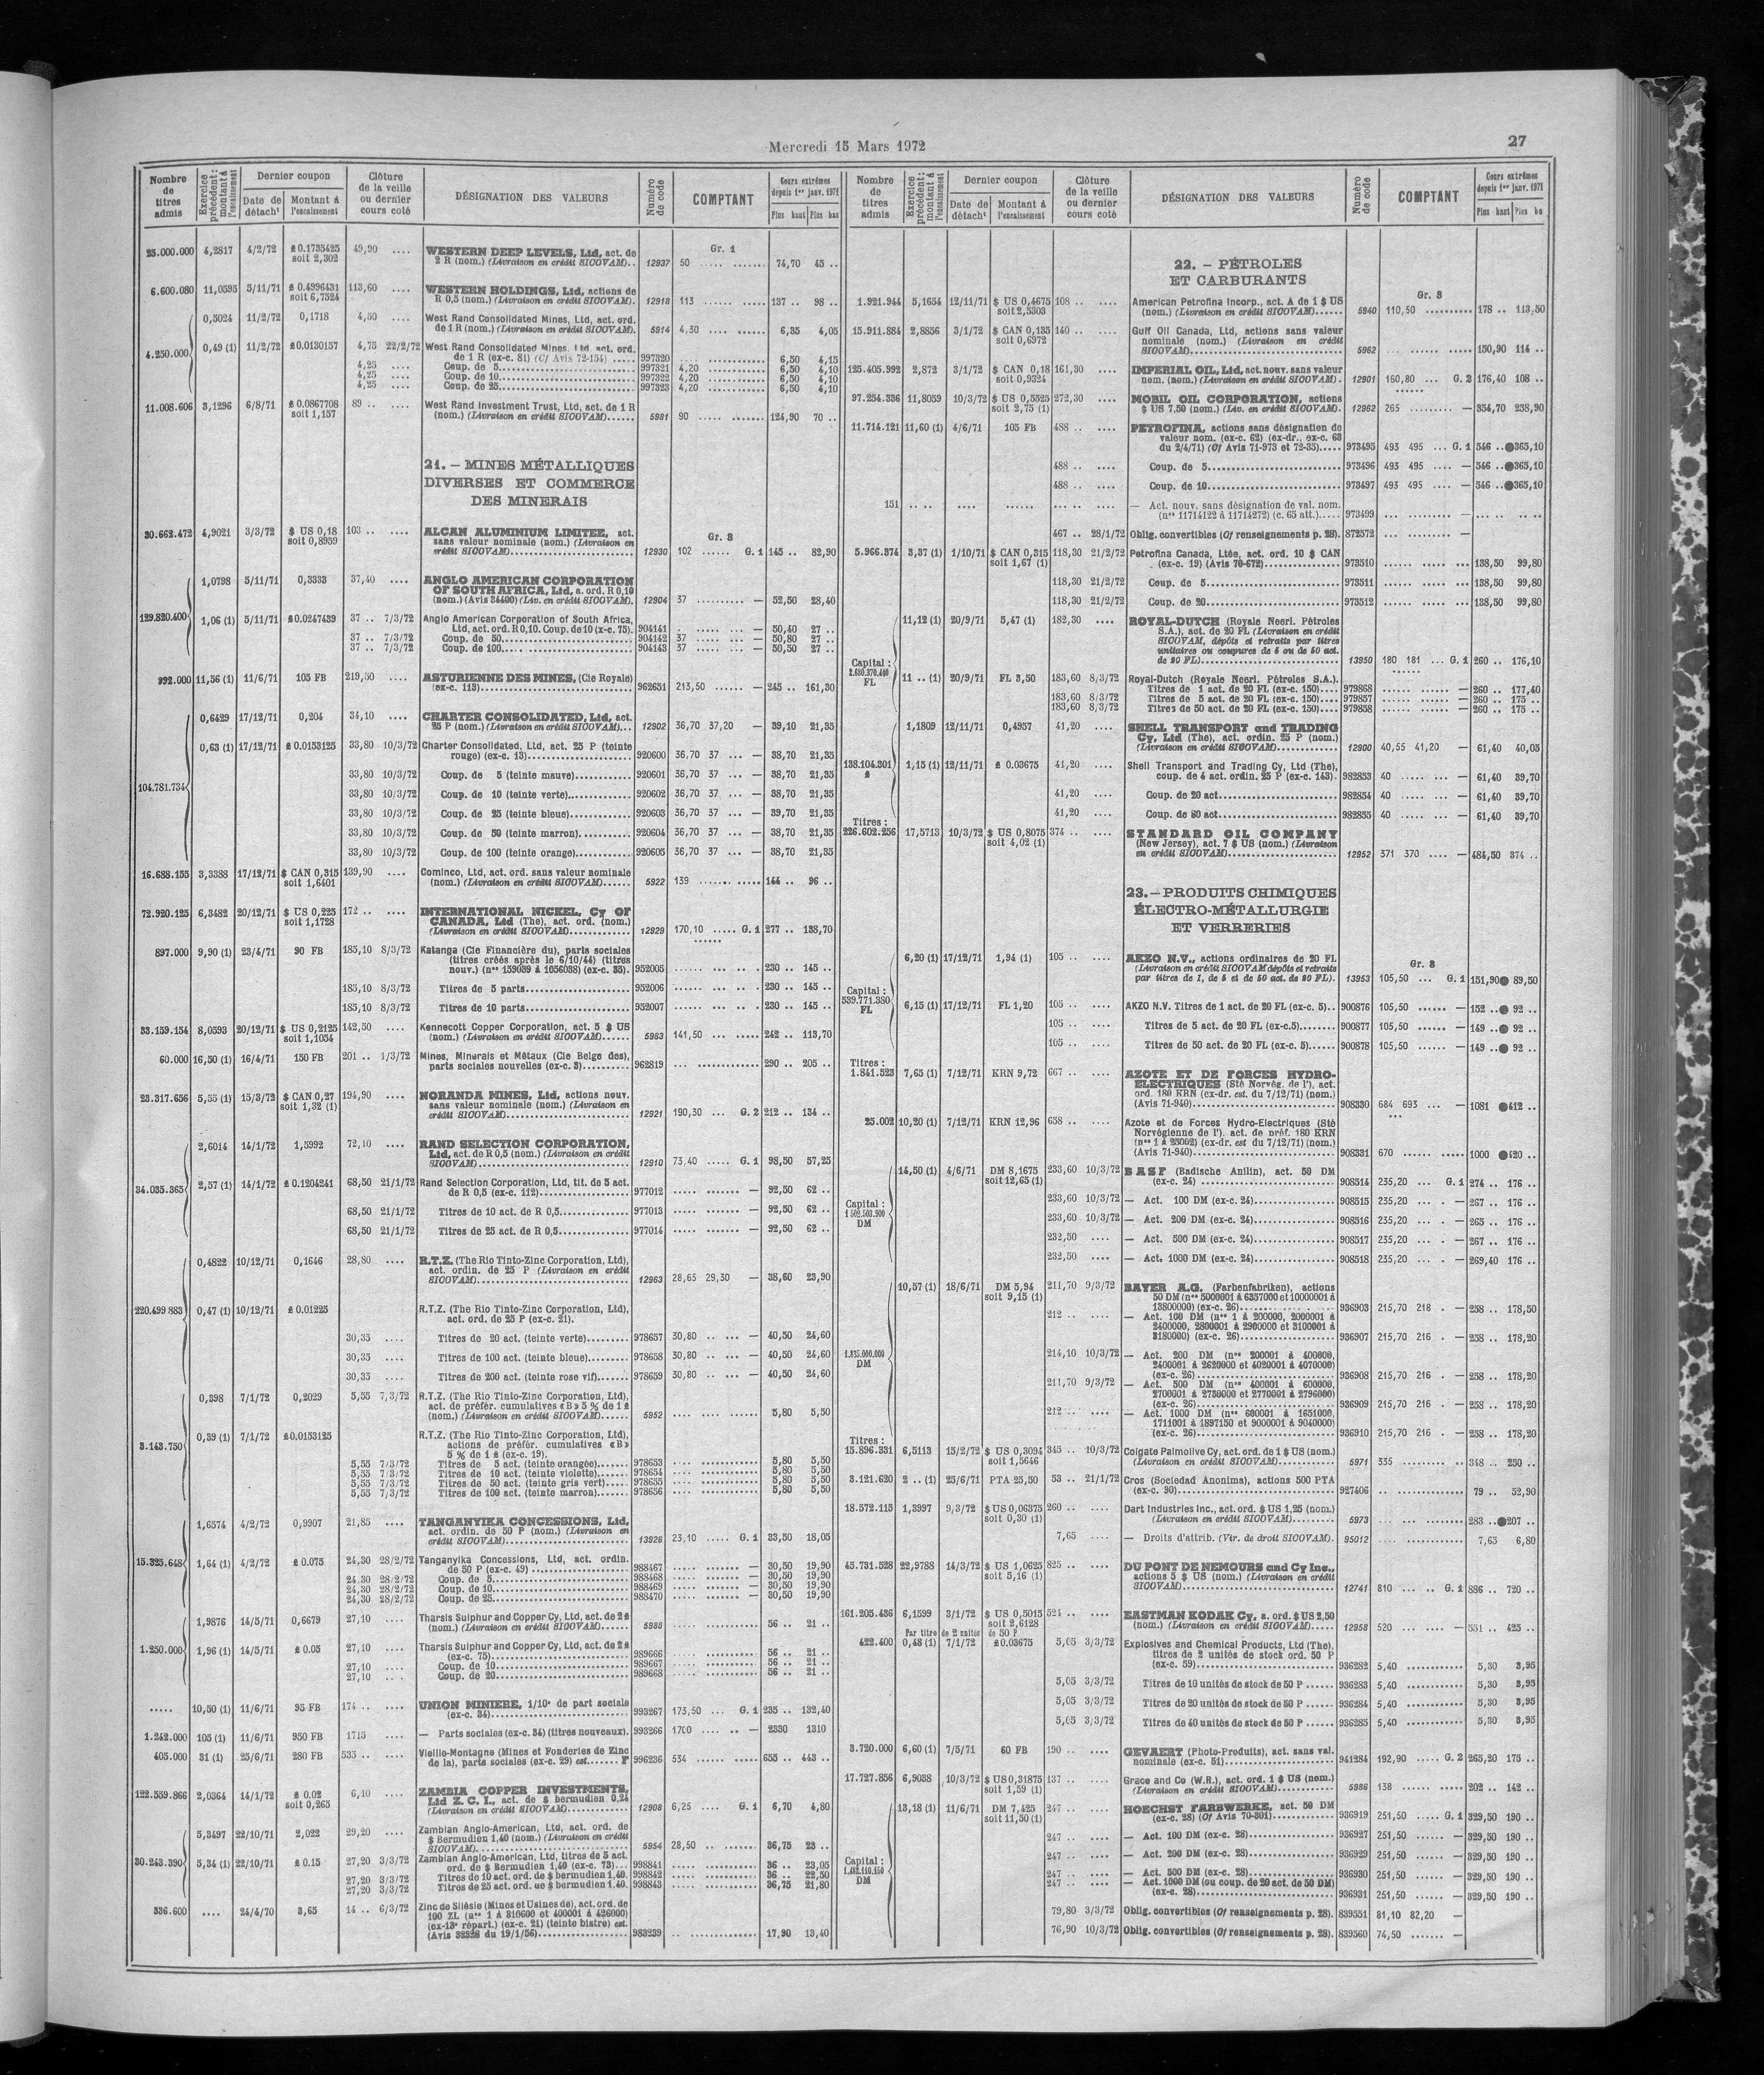 Mercredi 15 Mars 1972
27
Nombre de titres admis
Exercice précédent : montant à l'encaissement
Dernier coupon
Date de détach^t
Montant à l'encaissement
Clôture de la veille ou dernier cours coté
DÉSIGNATION DES VALEURS
Numéro de code
COMPTANT
Cours extrêmes depuis 1er janv. 1971
Plus haut Plus bas
Gr. 1
25.000.000 4,2817 4/2/72 £ 0.1735425 soit 2,302 49,90 .... WESTERN DEEP LEVELS, Ltd, act. de
2 R (nom.) (Livraison en crédit SICOVAM).. 12937 50 ..... ....... 74,70 45 ..
6.600.080 11,0595 5/11/71 £ 0.4996431 soit 6,7524 113,60 .... WESTERN HOLDINGS, Ltd, actions de
R 0,5 (nom.) (Livraison en crédit SICOVAM). 12918 113 ...... ..... 137 .. 98 ..
0,5024 11/2/72 0,1718 4,50 .... West Rand Consolidated Mines, Ltd, act. ord.
de 1 R (nom.) (Livraison en crédit SICOVAM). 5914 4,30 .... ...... 6,35 4,05
4.250.000 0,49 (1) 11/2/72 £0.0130157 4,75 22/2/72 West Rand Consolidated Mines, Ltd act. ord.
de 1 R (ex-c. 81) (Cf Avis 72-154) ..... 997320 .... ............ 6,50 4,15
4,25 .... Coup. de 5 997321 4,20 ............ 6,50 4,10
4,25 .... Coup. de 10 997322 4,20 ............ 6,50 4,10
4,25 .... Coup. de 25 997323 4,20 ............ 6,50 4,10
11.008.606 3,1296 6/8/71 £ 0.0867708 soit 1,157 89 .. .... West Rand Investment Trust, Ltd, act. de 1 R
(nom.) (Livraison en crédit SICOVAM)...... 5981 90 ..... ....... 124,90 70 ..
21. – MINES MÉTALLIQUES
DIVERSES ET COMMERCE
DES MINERAIS
Gr. 3
30.662.472 4,9021 3/3/72 $ US 0,18 soit 0,8959 103 .. .... ALCAN ALUMINIUM LIMITEE, act.
sans valeur nominale (nom.) (Livraison en
crédit SICOVAM) 12930 102 ...... G. 1 145 .. 82,90
1,0798 5/11/71 0,3333 37,40 .... ANGLO AMERICAN CORPORATION
OF SOUTH AFRICA, Ltd, a. ord. R 0,10
(nom.) (Avis 34400) (Liv. en crédit SICOVAM). 12904 37 .......... — 52,50 28,40
129.820.400 1,06 (1) 5/11/71 £0.0247439 37 .. 7/3/72 Anglo American Corporation of South Africa,
Ltd, act. ord. R 0,10. Coup. de 10 (x-c. 75). 904141 . ..... ... — 50,40 27 ..
37 .. 7/3/72 Coup. de 50 904142 37 ..... ... — 50,80 27 ..
37 .. 7/3/72 Coup. de 100 904143 37 ..... ... — 50,50 27 ..
992.000 11,56 (1) 11/6/71 105 FB 219,50 .... ASTURIENNE DES MINES, (Cie Royale)
(ex-c. 113) 962651 213,50 ...... — 245 .. 161,30
0,6429 17/12/71 0,204 34,10 .... CHARTER CONSOLIDATED, Ltd, act.
25 P (nom.) (Livraison en crédit SICOVAM)... 12902 36,70 37,20 — 39,10 21,35
104.781.734 0,63 (1) 17/12/71 £ 0.0153125 33,80 10/3/72 Charter Consolidated, Ltd, act. 25 P (teinte
rouge) (ex-c. 13) 920600 36,70 37 ... — 38,70 21,35
33,80 10/3/72 Coup. de 5 (teinte mauve) 920601 36,70 37 ... — 38,70 21,35
33,80 10/3/72 Coup. de 10 (teinte verte) 920602 36,70 37 ... — 38,70 21,35
33,80 10/3/72 Coup. de 25 (teinte bleue) 920603 36,70 37 ... — 39,70 21,35
33,80 10/3/72 Coup. de 50 (teinte marron) 920604 36,70 37 ... — 38,70 21,35
33,80 10/3/72 Coup. de 100 (teinte orange) 920605 36,70 37 ... — 38,70 21,35
16.688.155 3,3388 17/12/71 $ CAN 0,315 soit 1,6401 139,90 .... Cominco, Ltd, act. ord. sans valeur nominale
(nom.) (Livraison en crédit SICOVAM)...... 5922 139 ....... ..... 144 .. 96 ..
72.920.125 6,3482 20/12/71 $ US 0,225 soit 1,1728 172 .. .... INTERNATIONAL NICKEL, Cy OF
CANADA, Ltd (The), act. ord. (nom.)
(Livraison en crédit SICOVAM) 12929 170,10 ..... G. 1 277 .. 138,70
897.000 9,90 (1) 23/4/71 90 FB 185,10 8/3/72 Katanga (Cie Financière du), parts sociales
(titres créés après le 6/10/44) (titres
nouv.) (nos 159039 à 1056038) (ex-c. 35). 952005 ...... ... .. . 230 .. 145 ..
185,10 8/3/72 Titres de 5 parts 952006 ...... ... .. . 230 .. 145 ..
185,10 8/3/72 Titres de 10 parts 952007 ...... ... .. . 230 .. 145 ..
33.159.154 8,0593 20/12/71 $ US 0,2125 soit 1,1054 142,50 .... Kennecott Copper Corporation, act. 5 $ US
(nom.) (Livraison en crédit SICOVAM)...... 5963 141,50 ... ...... 242 .. 113,70
60.000 16,50 (1) 16/4/71 150 FB 201 .. 1/3/72 Mines, Minerais et Métaux (Cie Belge des),
parts sociales nouvelles (ex-c. 3) 962819 ... ............. 290 .. 205 ..
23.317.656 5,55 (1) 15/3/72 $ CAN 0,27 soit 1,32 (1) 194,90 .... NORANDA MINES, Ltd, actions nouv.
sans valeur nominale (nom.) (Livraison en
crédit SICOVAM) 12921 190,30 ... G. 2 212 .. 134 ..
2,6014 14/1/72 1,5992 72,10 .... RAND SELECTION CORPORATION,
Ltd, act. de R 0,5 (nom.) (Livraison en crédit
SICOVAM) 12910 73,40 ..... G. 1 98,50 57,25
34.035.365 2,57 (1) 14/1/72 £ 0.1204241 68,50 21/1/72 Rand Selection Corporation, Ltd, tit. de 5 act.
de R 0,5 (ex-c. 112) 977012 ..... ....... — 92,50 62 ..
68,50 21/1/72 Titres de 10 act. de R 0,5 977013 ..... ....... — 92,50 62 ..
68,50 21/1/72 Titres de 25 act. de R 0,5 977014 ..... ....... — 92,50 62 ..
0,4822 10/12/71 0,1646 28,80 .... R.T.Z. (The Rio Tinto-Zinc Corporation, Ltd),
act. ordin. de 25 P (Livraison en crédit
SICOVAM) 12963 28,65 29,30 — 38,60 23,90
220.499 883 0,47 (1) 10/12/71 £ 0.01225 R.T.Z. (The Rio Tinto-Zinc Corporation, Ltd),
act. ord. de 25 P (ex-c. 21).
30,35 .... Titres de 20 act. (teinte verte) 978657 30,80 .. ... — 40,50 24,60
30,35 .... Titres de 100 act. (teinte bleue) 978658 30,80 .. ... — 40,50 24,60
30,35 .... Titres de 200 act. (teinte rose vif) 978659 30,80 .. ... — 40,50 24,60
0,398 7/1/72 0,2029 5,55 7/3/72 R.T.Z. (The Rio Tinto-Zinc Corporation, Ltd),
act. de préfér. cumulatives «B» 5 % de 1 £
(nom.) (Livraison en crédit SICOVAM)...... 5952 .... .... ...... 5,80 5,50
3.143.750 0,39 (1) 7/1/72 £0.0153125 R.T.Z. (The Rio Tinto-Zinc Corporation, Ltd),
actions de préfér. cumulatives «B»
5 % de 1 £ (ex-c. 19).
5,55 7/3/72 Titres de 5 act. (teinte orangée) 978653 .... .......... 5,80 5,50
5,55 7/3/72 Titres de 10 act. (teinte violette) 978654 .... .......... 5,80 5,50
5,55 7/3/72 Titres de 50 act. (teinte gris vert) 978655 .... .......... 5,80 5,50
5,55 7/3/72 Titres de 100 act. (teinte marron) 978656 .... .......... 5,80 5,50
1,6574 4/2/72 0,9907 21,85 .... TANGANYIKA CONCESSIONS, Ltd,
act. ordin. de 50 P (nom.) (Livraison en
crédit SICOVAM) 13926 23,10 ..... G. 1 33,50 18,05
15.325.648 1,64 (1) 4/2/72 £ 0.075 24,30 28/2/72 Tanganyika Concessions, Ltd, act. ordin.
de 50 P (ex-c. 49) 988467 ..... ...... — 30,50 19,90
24,30 28/2/72 Coup. de 5 988468 ..... ...... — 30,50 19,90
24,30 28/2/72 Coup. de 10 988469 ..... ...... — 30,50 19,90
24,30 28/2/72 Coup. de 25 988470 ..... ...... — 30,50 19,90
1,9876 14/5/71 0,6679 27,10 .... Tharsis Sulphur and Copper Cy, Ltd, act. de 2 £
(nom.) (Livraison en crédit SICOVAM)...... 5988 .... ......... 56 .. 21 ..
1.250.000 1,96 (1) 14/5/71 £ 0.05 27,10 .... Tharsis Sulphur and Copper Cy, Ltd, act. de 2 £
(ex-c. 75) 989666 ..... .......... 56 .. 21 ..
27,10 .... Coup. de 10 989667 ..... .......... 56 .. 21 ..
27,10 .... Coup. de 20 989668 ..... .......... 56 .. 21 ..
..... 10,50 (1) 11/6/71 95 FB 174 .. .... UNION MINIERE, 1/10e de part sociale
(ex-c. 34) 993267 173,50 ... G. 1 235 .. 132,40
1.242.000 105 (1) 11/6/71 950 FB 1715 — Parts sociales (ex-c. 34) (titres nouveaux). 993266 1700 .... .. — 2330 1310
405.000 31 (1) 25/6/71 280 FB 535 .. .... Vieille-Montagne (Mines et Fonderies de Zinc
de la), parts sociales (ex-c. 29) est....... F 996236 534 ...... ...... 655 .. 443 ..
122.559.866 2,0364 14/1/72 £ 0.02 soit 0,265 6,10 .... ZAMBIA COPPER INVESTMENTS,
Ltd Z. C. I., act. de $ bermudien 0,24
(Livraison en crédit SICOVAM) 12908 6,25 .... G. 1 6,70 4,80
5,3497 22/10/71 2,022 29,20 .... Zambian Anglo-American, Ltd, act. ord. de
$ Bermudien 1,40 (nom.) (Livraison en crédit
SICOVAM) 5954 28,50 .. ...... 36,75 23 ..
30.243.390 5,34 (1) 22/10/71 £ 0.15 27,20 3/3/72 Zambian Anglo-American, Ltd, titres de 5 act.
ord. de $ Bermudien 1,40 (ex-c. 73) 998841 ..... .......... 36 .. 23,05
27,20 3/3/72 Titres de 10 act. ord. de $ bermudien 1,40. 998842 ..... .......... 36 .. 22,50
27,20 3/3/72 Titres de 25 act. ord. de $ bermudien 1,40. 998843 ..... .......... 36,75 21,80
336.600 .... 24/4/70 3,65 14 .. 6/3/72 Zinc de Silésie (Mines et Usines de), act. ord. de
100 ZL (nos 1 à 310600 et 400001 à 426000)
(ex-13e répart.) (ex-c. 21) (teinte bistre) est.
(Avis 32328 du 19/1/56) 983239 .. ............. 17,90 13,40
Nombre de titres admis
Exercice précédent : montant à l'encaissement
Dernier coupon
Date de détach^t
Montant à l'encaissement
Clôture de la veille ou dernier cours coté
DÉSIGNATION DES VALEURS
Numéro de code
COMPTANT
Cours extrêmes depuis 1er janv. 1971
Plus haut Plus ba
22. – PÉTROLES
ET CARBURANTS
Gr. 3
1.921.944 5,1654 12/11/71 $ US 0,4675 soit 2,5303 108 .. .... American Petrofina Incorp., act. A de 1 $ US
(nom.) (Livraison en crédit SICOVAM)...... 5940 110,50 ........... 178 .. 113,50
15.911.884 2,8856 3/1/72 $ CAN 0,135 soit 0,6972 140 .. .... Gulf Oil Canada, Ltd, actions sans valeur
nominale (nom.) (Livraison en crédit
SICOVAM) 5962 ... ...... ..... 150,90 114 ..
125.405.992 2,872 3/1/72 $ CAN 0,18 soit 0,9324 161,30 .... IMPERIAL OIL, Ltd, act. nouv. sans valeur
nom. (nom.) (Livraison en crédit SICOVAM) . 12901 160,80 ... G. 2 176,40 108 ..
97.254.336 11,8059 10/3/72 $ US 0,5525 soit 2,75 (1) 272,30 .... MOBIL OIL CORPORATION, actions
$ US 7,50 (nom.) (Liv. en crédit SICOVAM). 12962 265 ......... — 354,70 258,90
11.714.121 11,60 (1) 4/6/71 105 FB 488 .. .... PETROFINA, actions sans désignation de
valeur nom. (ex-c. 62) (ex-dr., ex-c. 63
du 2/4/71) (Cf Avis 71-973 et 72-35)..... 973495 493 495 ... G. 1 546 ..●365,10
488 .. .... Coup. de 5 973496 493 495 .... — 546 ..●365,10
488 .. .... Coup. de 10 973497 493 495 .... — 546 ..●365,10
151 .. .. .... ...... ... .. .... — Act. nouv. sans désignation de val. nom.
(nos 11714122 à 11714272) (c. 65 att.)..... 973499 ... ......... — ... .. .. ..
467 .. 28/1/72 Oblig. convertibles (Cf renseignements p. 28). 872572 ... ......... —
5.966.374 3,37 (1) 1/10/71 $ CAN 0,315 soit 1,67 (1) 118,30 21/2/72 Petrofina Canada, Ltée, act. ord. 10 $ CAN
(ex-c. 19) (Avis 70-672) 973510 ...... ...... ... 138,50 99,80
118,30 21/2/72 Coup. de 5 973511 ...... ...... ... 138,50 99,80
118,30 21/2/72 Coup. de 20 973512 ...... ...... ... 138,50 99,80
Capital : 2.680.370.440 FL
11,12 (1) 20/9/71 5,47 (1) 182,30 .... ROYAL-DUTCH (Royale Neerl. Pétroles
S.A.), act. de 20 FL (Livraison en crédit
SICOVAM, dépôts et retraits par titres
unitaires ou coupures de 5 ou de 50 act.
de 20 FL) 13950 180 181 ... G. 1 260 .. 176,10
11 .. (1) 20/9/71 FL 3,50 183,60 8/3/72 Royal-Dutch (Royale Neerl. Pétroles S.A.).
Titres de 1 act. de 20 FL (ex-c. 150).... 979868 ...... ...... — 260 .. 177,40
183,60 8/3/72 Titres de 5 act. de 20 FL (ex-c. 150).... 979857 ...... ...... — 260 .. 175 ..
183,60 8/3/72 Titres de 50 act. de 20 FL (ex-c. 150).... 979858 ...... ...... — 260 .. 175 ..
1,1809 12/11/71 0,4957 41,20 .... SHELL TRANSPORT and TRADING
Cy, Ltd (The), act. ordin. 25 P (nom.)
(Livraison en crédit SICOVAM) 12900 40,55 41,20 — 61,40 40,05
138.104.301 £ 1,15 (1) 12/11/71 £ 0.03675 41,20 .... Shell Transport and Trading Cy, Ltd (The),
coup. de 4 act. ordin. 25 P (ex-c. 143). 982853 40 ..... ... — 61,40 39,70
41,20 .... Coup. de 20 act. 982854 40 ..... ... — 61,40 39,70
41,20 .... Coup. de 80 act. 982855 40 ..... ... — 61,40 39,70
Titres :
226.602.256 17,5713 10/3/72 $ US 0,8075 soit 4,02 (1) 374 .. .... STANDARD OIL COMPANY
(New Jersey), act. 7 $ US (nom.) (Livraison
en crédit SICOVAM) 12952 371 370 .... — 484,50 374 ..
23. – PRODUITS CHIMIQUES
ÉLECTRO-MÉTALLURGIE
ET VERRERIES
Gr. 3
Capital : 539.771.380 FL
6,20 (1) 17/12/71 1,94 (1) 105 .. .... AKZO N.V., actions ordinaires de 20 FL
(Livraison en crédit SICOVAM dépôts et retraits
par titres de 1, de 5 et de 50 act. de 20 FL). 13953 105,50 ... G. 1 151,90● 89,50
6,15 (1) 17/12/71 FL 1,20 105 .. .... AKZO N.V. Titres de 1 act. de 20 FL (ex-c. 5).. 900876 105,50 ...... — 152 ..● 92 ..
105 .. .... Titres de 5 act. de 20 FL (ex-c.5) 900877 105,50 ...... — 149 ..● 92 ..
105 .. .... Titres de 50 act. de 20 FL (ex-c. 5) 900878 105,50 ...... — 149 ..● 92 ..
Titres :
1.841.523 7,65 (1) 7/12/71 KRN 9,72 667 .. .... AZOTE ET DE FORCES HYDRO-
ELECTRIQUES (Sté Norvég. de l'), act.
ord. 180 KRN (ex-dr. est. du 7/12/71) (nom.)
(Avis 71-940) 908330 684 693 ... — 1081 ●412 ..
25.002 10,20 (1) 7/12/71 KRN 12,96 658 .. .... Azote et de Forces Hydro-Electriques (Sté
Norvégienne de l'). act. de préf. 180 KRN
(nos 1 à 25002) (ex-dr. est du 7/12/71) (nom.)
(Avis 71-940) 908331 670 ...... ..... 1000 ●420 ..
Capital : 1 502.503.900 DM
14,50 (1) 4/6/71 DM 8,1675 soit 12,65 (1) 233,60 10/3/72 BASF (Badische Anilin), act. 50 DM
(ex-c. 24) 908514 235,20 ... G. 1 274 .. 176 ..
233,60 10/3/72 — Act. 100 DM (ex-c. 24) 908515 235,20 ... . — 267 .. 176 ..
233,60 10/3/72 — Act. 200 DM (ex-c. 24) 908516 235,20 ... . — 265 .. 176 ..
232,50 .... — Act. 500 DM (ex-c. 24) 908517 235,20 ... . — 267 .. 176 ..
232,50 .... — Act. 1000 DM (ex-c. 24) 908518 235,20 ... . — 269,40 176 ..
1.835.000.000 DM
10,57 (1) 18/6/71 DM 5,94 soit 9,15 (1) 211,70 9/3/72 BAYER A.G. (Farbenfabriken), actions
50 DM (nos 5000001 à 6357000 et 10000001 à
13800000) (ex-c. 26) 936903 215,70 218 . — 258 .. 178,50
212 .. .... — Act. 100 DM (nos 1 à 200000, 2000001 à
2400000, 2800001 à 2900000 et 3100001 à
3180000) (ex-c. 26) 936907 215,70 216 . — 258 .. 178,20
214,10 10/3/72 — Act. 200 DM (nos 200001 à 400000,
2400001 à 2620000 et 4020001 à 4070000)
(ex-c. 26) 936908 215,70 216 . — 258 .. 178,20
211,70 9/3/72 — Act. 500 DM (nos 400001 à 600000,
2700001 à 2730000 et 2770001 à 2796000)
(ex-c. 26) 936909 215,70 216 . — 258 .. 178,20
212 .. .... — Act. 1000 DM (nos 600001 à 1651000,
1711001 à 1897150 et 9000001 à 9040000)
(ex-c. 26) 936910 215,70 216 . — 258 .. 178,20
Titres :
15.896.331 6,5113 15/2/72 $ US 0,3094 soit 1,5646 345 .. 10/3/72 Colgate Palmolive Cy, act. ord. de 1 $ US (nom.)
(Livraison en crédit SICOVAM) 5971 335 ......... .. 348 .. 250 ..
3.121.620 2 .. (1) 25/6/71 PTA 25,50 53 .. 21/1/72 Cros (Sociedad Anonima), actions 500 PTA
(ex-c. 90) 927406 .. ............ 79 .. 52,90
18.572.115 1,3997 9/3/72 $ US 0,06375 soit 0,30 (1) 260 .. .... Dart Industries Inc., act. ord. $ US 1,25 (nom.)
(Livraison en crédit SICOVAM) 5973 ... ... ......... 283 ..●207 ..
7,65 .... — Droits d'attrib. (Vir. de droit SICOVAM). 95012 .... ........... 7,65 6,80
45.731.528 22,9788 14/3/72 $ US 1,0625 soit 5,16 (1) 825 .. .... DU PONT DE NEMOURS and Cy Inc.,
actions 5 $ US (nom.) (Livraison en crédit
SICOVAM) 12741 810 ... .. G. 1 886 .. 720 ..
161.205.436 6,1599 3/1/72 $ US 0,5015 soit 2,6128 524 .. .... EASTMAN KODAK Cy, a. ord. $ US 2,50
(nom.) (Livraison en crédit SICOVAM)...... 12958 520 .... ..... — 551 .. 425 ..
Par titre de 2 unités de 50 P
422.400 0,48 (1) 7/1/72 £0.03675 5,05 3/3/72 Explosives and Chemical Products, Ltd (The),
titres de 2 unités de stock ord. 50 P
(ex-c. 59) 936282 5,40 ............ 5,30 3,95
5,05 3/3/72 Titres de 10 unités de stock de 50 P 936283 5,40 ............ 5,30 3,95
5,05 3/3/72 Titres de 20 unités de stock de 50 P 936284 5,40 ............ 5,30 3,95
5,05 3/3/72 Titres de 40 unités de stock de 50 P 936285 5,40 ............ 5,30 3,95
3.720.000 6,60 (1) 7/5/71 60 FB 190 .. .... GEVAERT (Photo-Produits), act. sans val.
nominale (ex-c. 51) 941284 192,90 ..... G. 2 265,20 175 ..
17.727.856 6,9038 10/3/72 $ US 0,31875 soit 1,59 (1) 137 .. .... Grace and Co (W.R.), act. ord. 1 $ US (nom.)
(Livraison en crédit SICOVAM) 5986 138 ...... ...... 202 .. 142 ..
Capital : 1.482.110.150 DM
13,18 (1) 11/6/71 DM 7,425 soit 11,50 (1) 247 .. .... HOECHST FARBWERKE, act. 50 DM
(ex-c. 28) (Cf Avis 70-301) 936919 251,50 ..... G. 1 329,50 190 ..
247 .. .... — Act. 100 DM (ex-c. 28) 936927 251,50 ...... — 329,50 190 ..
247 .. .... — Act. 200 DM (ex-c. 28) 936929 251,50 ...... — 329,50 190 ..
247 .. .... — Act. 500 DM (ex-c. 28) 936930 251,50 ...... — 329,50 190 ..
247 .. .... — Act. 1000 DM (ou coup. de 20 act. de 50 DM)
(ex-c. 28) 936931 251,50 ...... — 329,50 190 ..
79,80 3/3/72 Oblig. convertibles (Cf renseignements p. 28). 839551 81,10 82,20 —
76,90 10/3/72 Oblig. convertibles (Cf renseignements p. 28). 839560 74,50 ....... —